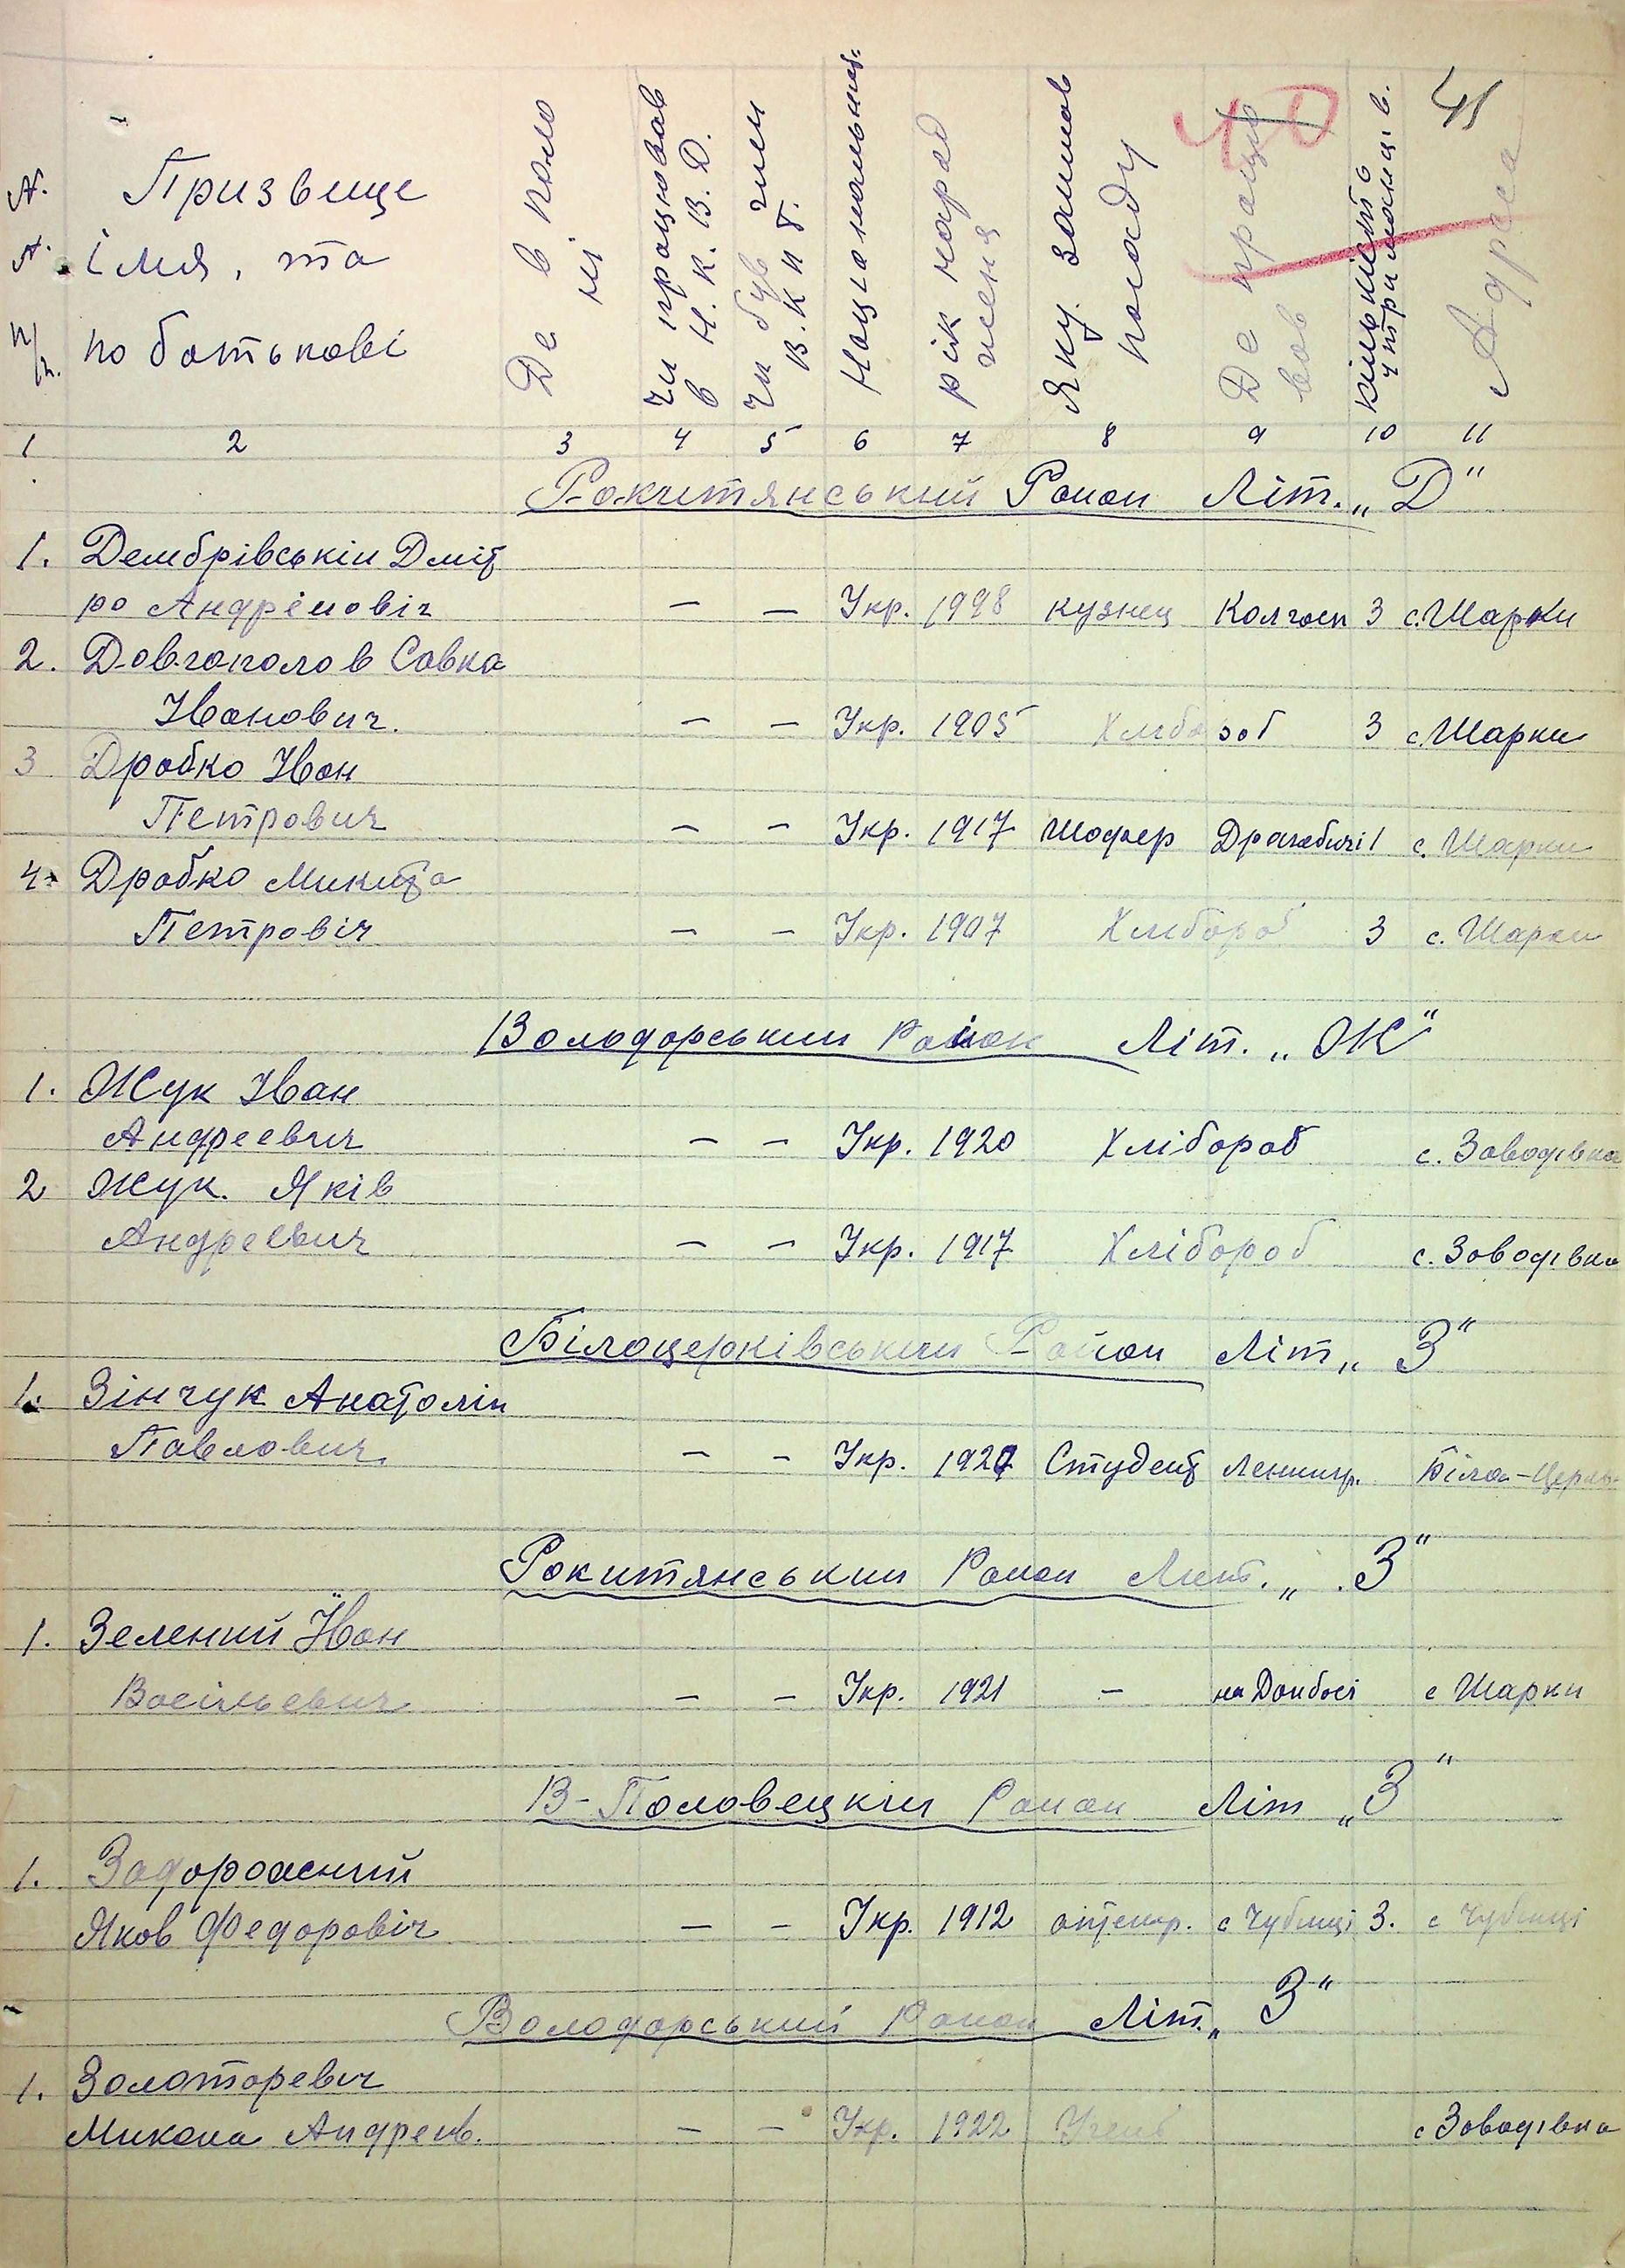 41
40
N. N. п/п.
Призвище
імя, та
по батькові
Де в поло ні
чи працював в Н. К. В. Д.
чи був член В. К п б.
Націона льніст.
рік народ ження
Яку займав посаду
Де працю вав
кількість утриманців.
Адреса
1 2 3 4 5 6 7 8 9 10 11
Рокитянський Район Літ. „Д"
1. Дембрівськіи Дміт
ро Андріиовіч — — Укр. 1998 кузнец Колгосп 3 с. Шарки
2. Довгополов Савка
Іванович. — — Укр. 1905 Хлібороб 3 с. Шарки
3 Дробко Іван
Петрович — — Укр. 1917 Шофер 1 с. Шарки
4. Дробко Микита
Петровіч — — Укр. 1907 Хлібороб 3 с. Шарки
Володарськии Район Літ. „Ж"
1. Жук Іван
Андреевич — — Укр. 1920 Хлібороб с. Заводівка
2 Жук. Яків
Андреевич — — Укр. 1917 Хлібороб с. Заводівка
Білоцерківськии Раион Літ „З"
1. Зінчук Анатоліи
Павлович. — — Укр. Студент Ленингр. Біла-Церкв
Рокитянськии Раион Лит. „З"
1. Зелений Іван
Васільевич — — Укр. 1921 — на Донбасі с Шарки
В-Половецкіи Раион Літ „З"
1. Задорожний
Яков Федоровіч — — Укр. 1912 с Чубинці 3. с Чубинці
Володарський Раион Літ. „З"
1. Золоторевич
Микола Андреев. — — Укр. 1922 Учень с Заводівка